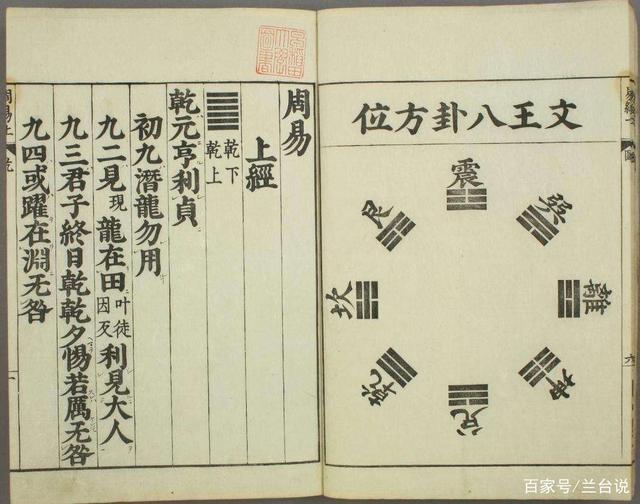 文王八卦方位
震
巽
離
坤
兌
乾
坎
艮
周易
上經
䷀ 乾下
乾上
乾元亨利貞
初九潛龍勿用
九二見現龍在田叶徒因反利見大人
九三君子終日乾乾夕惕若厲无咎
九四或躍在淵无咎
周易上
乾
一
百家号/兰台说